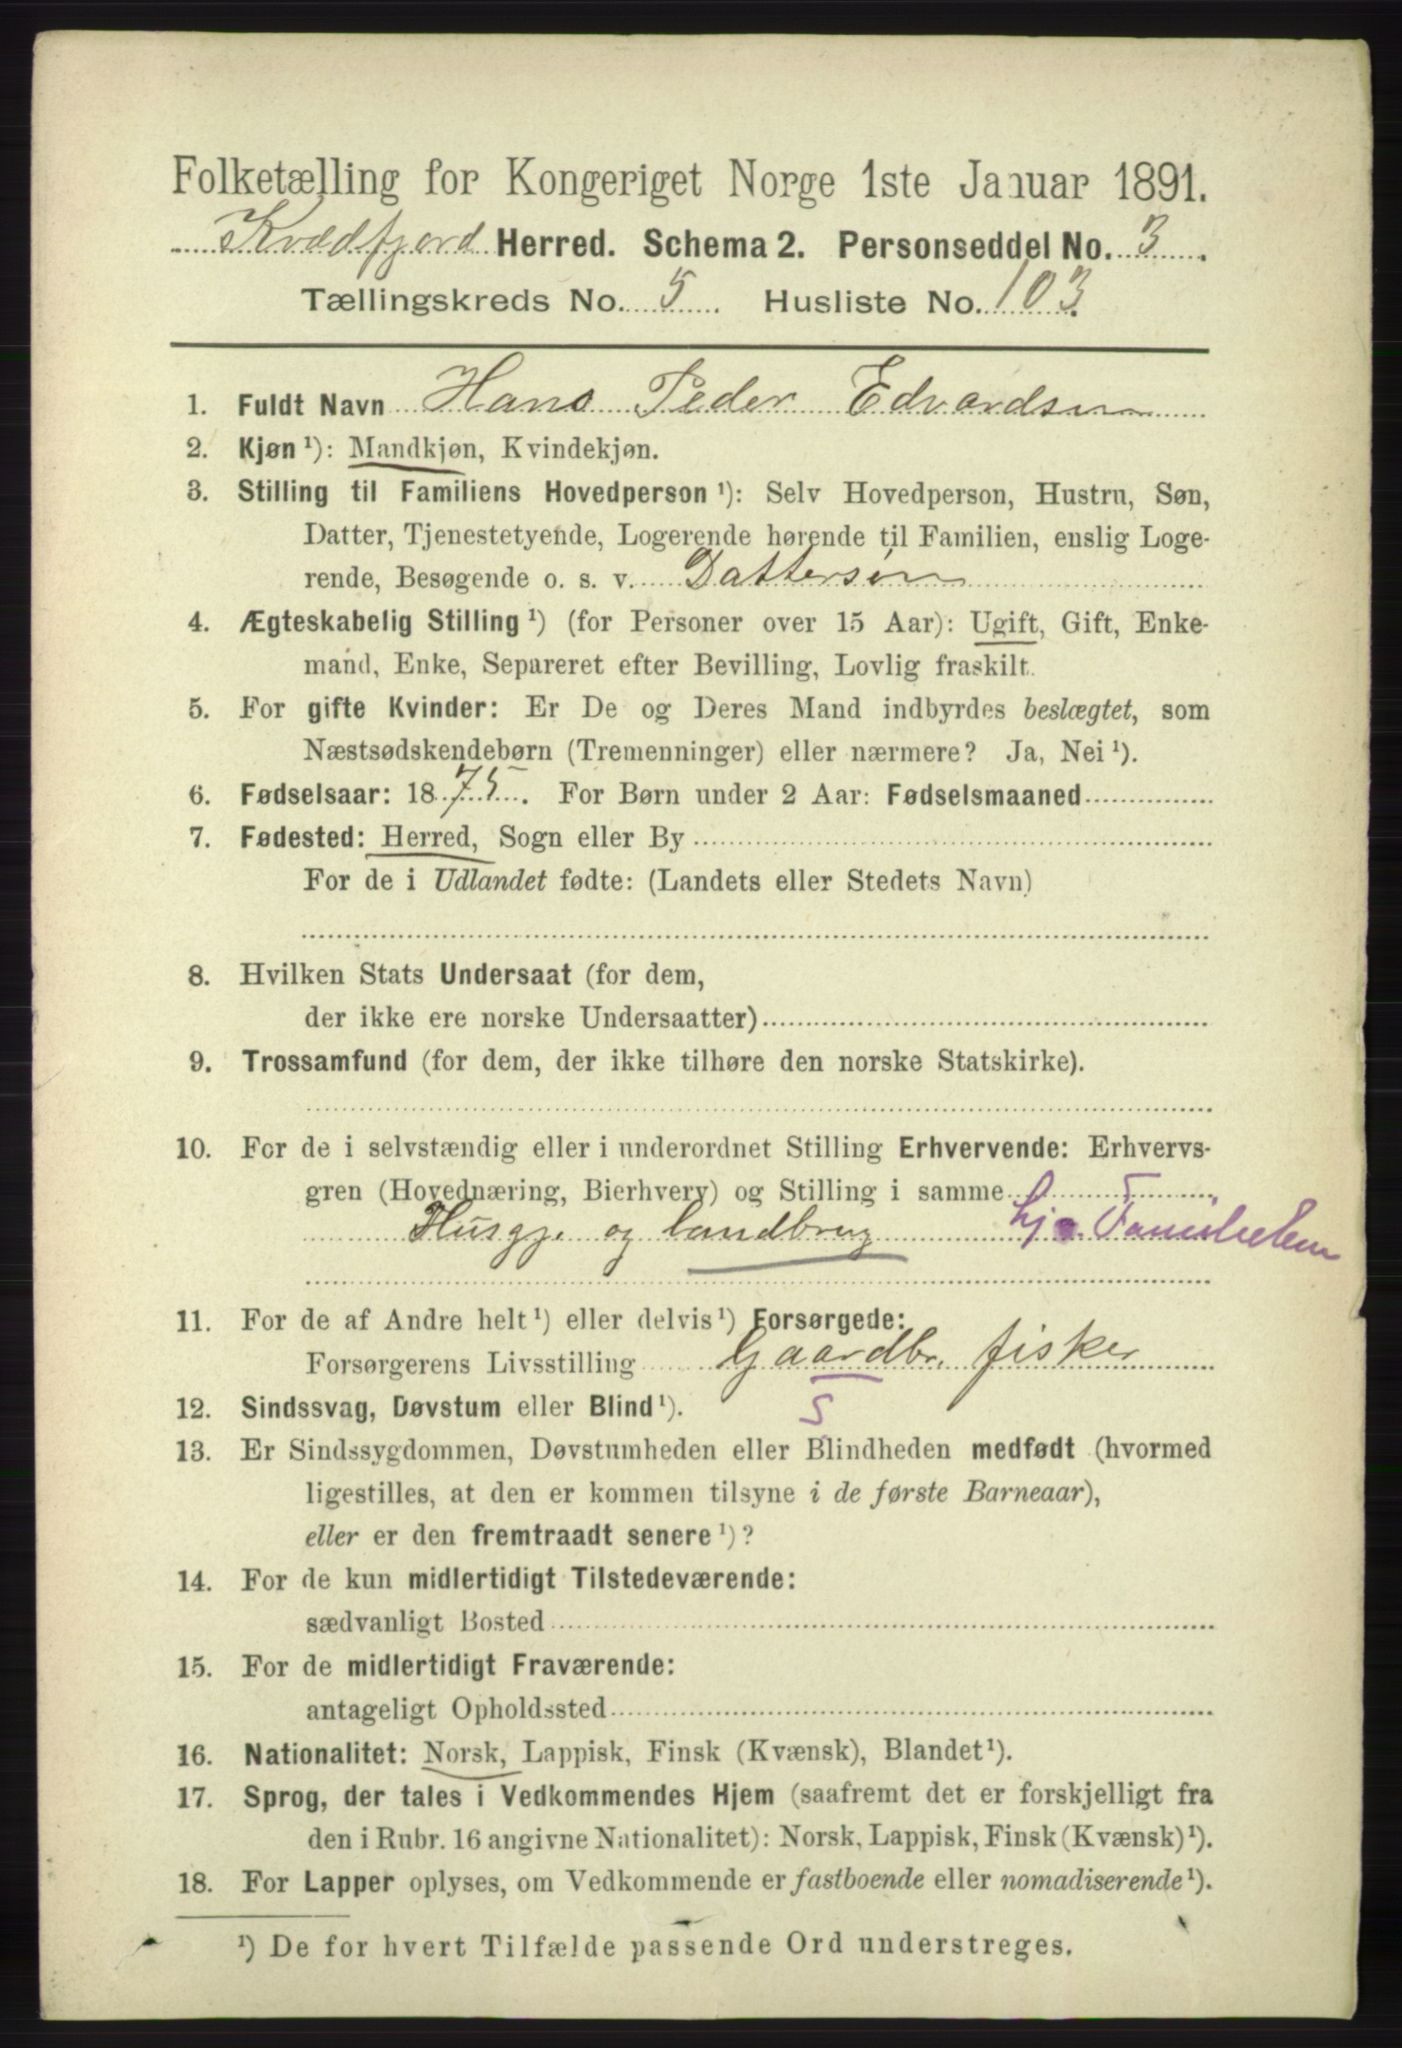 Folketælling for Kongeriget Norge 1ste Januar 1891.
Kvædfjord Herred. Schema 2. Personseddel No. 3.
Tællingskreds No. 5. Husliste No. 103.
1. Fuldt Navn Hans Peder Edvardsen
2. Kjøn¹): Mandkjøn, Kvindekjøn.
3. Stilling til Familiens Hovedperson¹): Selv Hovedperson, Hustru, Søn,
Datter, Tjenestetyende, Logerende hørende til Familien, enslig Loge-
rende, Besøgende o. s. v. Dattersøn
4. Ægteskabelig Stilling¹) (for Personer over 15 Aar): Ugift, Gift, Enke-
mand, Enke, Separeret efter Bevilling, Lovlig fraskilt.
5. For gifte Kvinder: Er De og Deres Mand indbyrdes beslægtet, som
Næstsødskendebørn (Tremenninger) eller nærmere? Ja, Nei¹).
6. Fødselsaar: 1875. For Børn under 2 Aar: Fødselsmaaned
7. Fødested: Herred, Sogn eller By
For de i Udlandet fødte: (Landets eller Stedets Navn)
8. Hvilken Stats Undersaat (for dem,
der ikke ere norske Undersaatter)
9. Trossamfund (for dem, der ikke tilhøre den norske Statskirke).
10. For de i selvstændig eller i underordnet Stilling Erhvervende: Erhvervs-
gren (Hovednæring, Bierhverv) og Stilling i samme
Husgj. og landbrug
11. For de af Andre helt¹) eller delvis¹) Forsørgede:
Forsørgerens Livsstilling Gaardbr. fisker
12. Sindssvag, Døvstum eller Blind¹). S
13. Er Sindssygdommen, Døvstumheden eller Blindheden medfødt (hvormed
ligestilles, at den er kommen tilsyne i de første Barneaar),
eller er den fremtraadt senere¹)?
14. For de kun midlertidigt Tilstedeværende:
sædvanligt Bosted
15. For de midlertidigt Fraværende:
antageligt Opholdssted
16. Nationalitet: Norsk, Lappisk, Finsk (Kvænsk), Blandet¹).
17. Sprog, der tales i Vedkommendes Hjem (saafremt det er forskjelligt fra
den i Rubr. 16 angivne Nationalitet): Norsk, Lappisk, Finsk (Kvænsk)¹).
18. For Lapper oplyses, om Vedkommende er fastboende eller nomadiserende¹).
¹) De for hvert Tilfælde passende Ord understreges.